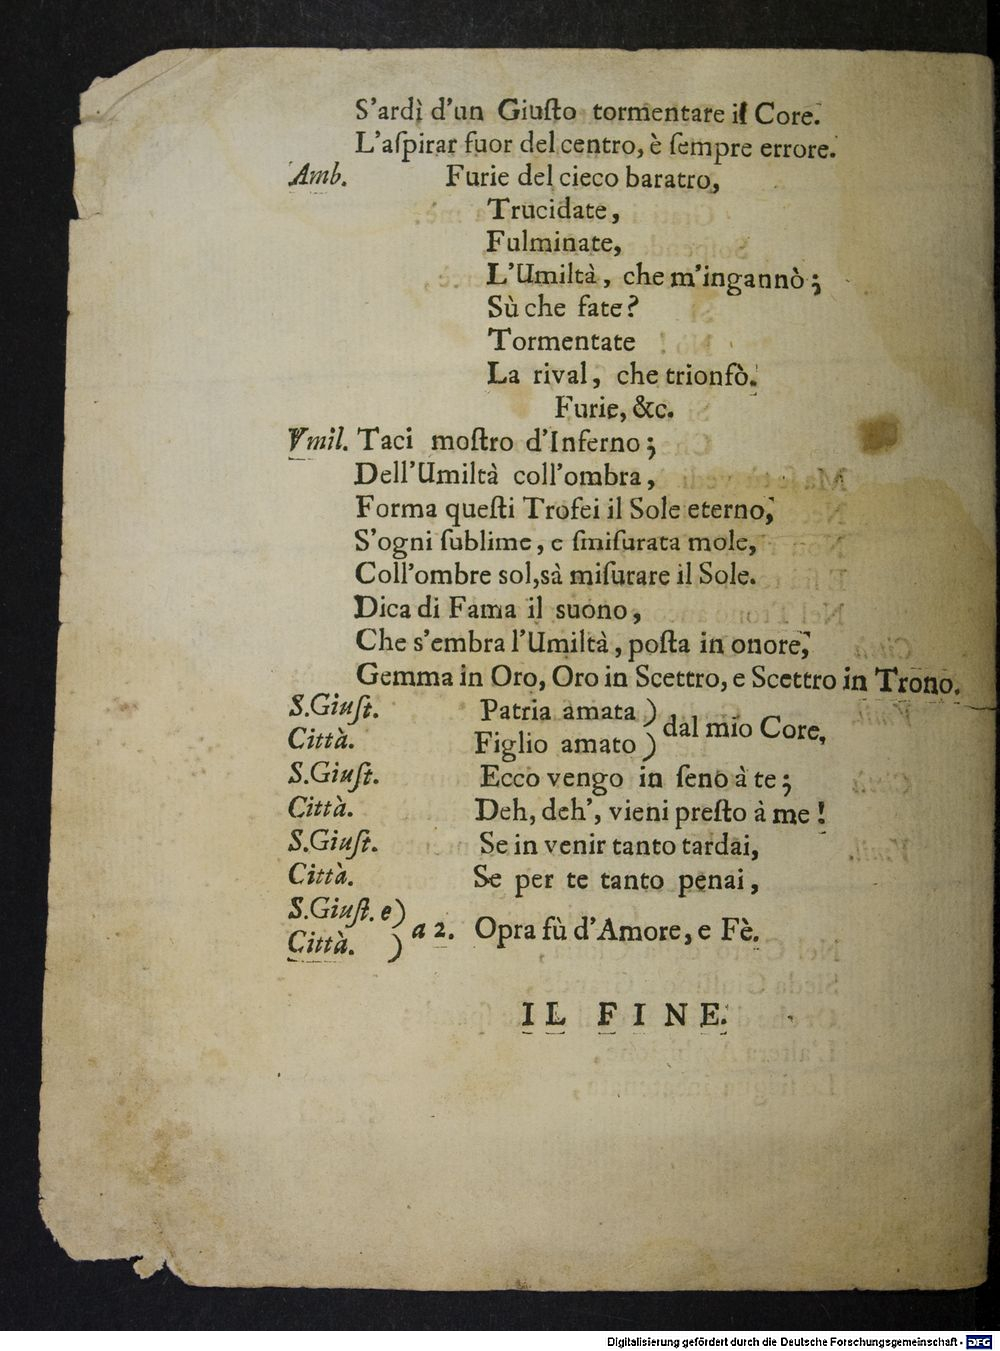 S'ardì d'un Giuſto tormentare il Core.
L'aſpirar fuor del centro, è ſempre errore.
Amb. Furie del cieco baratro,
Trucidate,
Fulminate,
L'Umiltà, che m'ingannò;
Sù che fate?
Tormentate
La rival, che trionfò.
Furie, &c.
Vmil. Taci moſtro d'Inferno;
Dell'Umiltà coll'ombra,
Forma queſti Trofei il Sole eterno;
S'ogni ſublime, e ſmiſurata mole,
Coll'ombre sol,sà miſurare il Sole.
Dica di Fama il suono,
Che s'embra l'Umiltà, poſta in onore;
Gemma in Oro, Oro in Scettro, e Scettro in Trono.
S.Giuſt. Patria amata ) dal mio Core,
Città. Figlio amato )
S.Giuſt. Ecco vengo in ſeno à te;
Città. Deh, deh', vieni preſto à me!
S.Giuſt. Se in venir tanto tardai,
Città. Se per te tanto penai,
S.Giuſt. e) a 2. Opra fù d'Amore, e Fè.
Città. )
IL FINE.
Digitalisierung gefördert durch die Deutsche Forschungsgemeinschaft - DFG